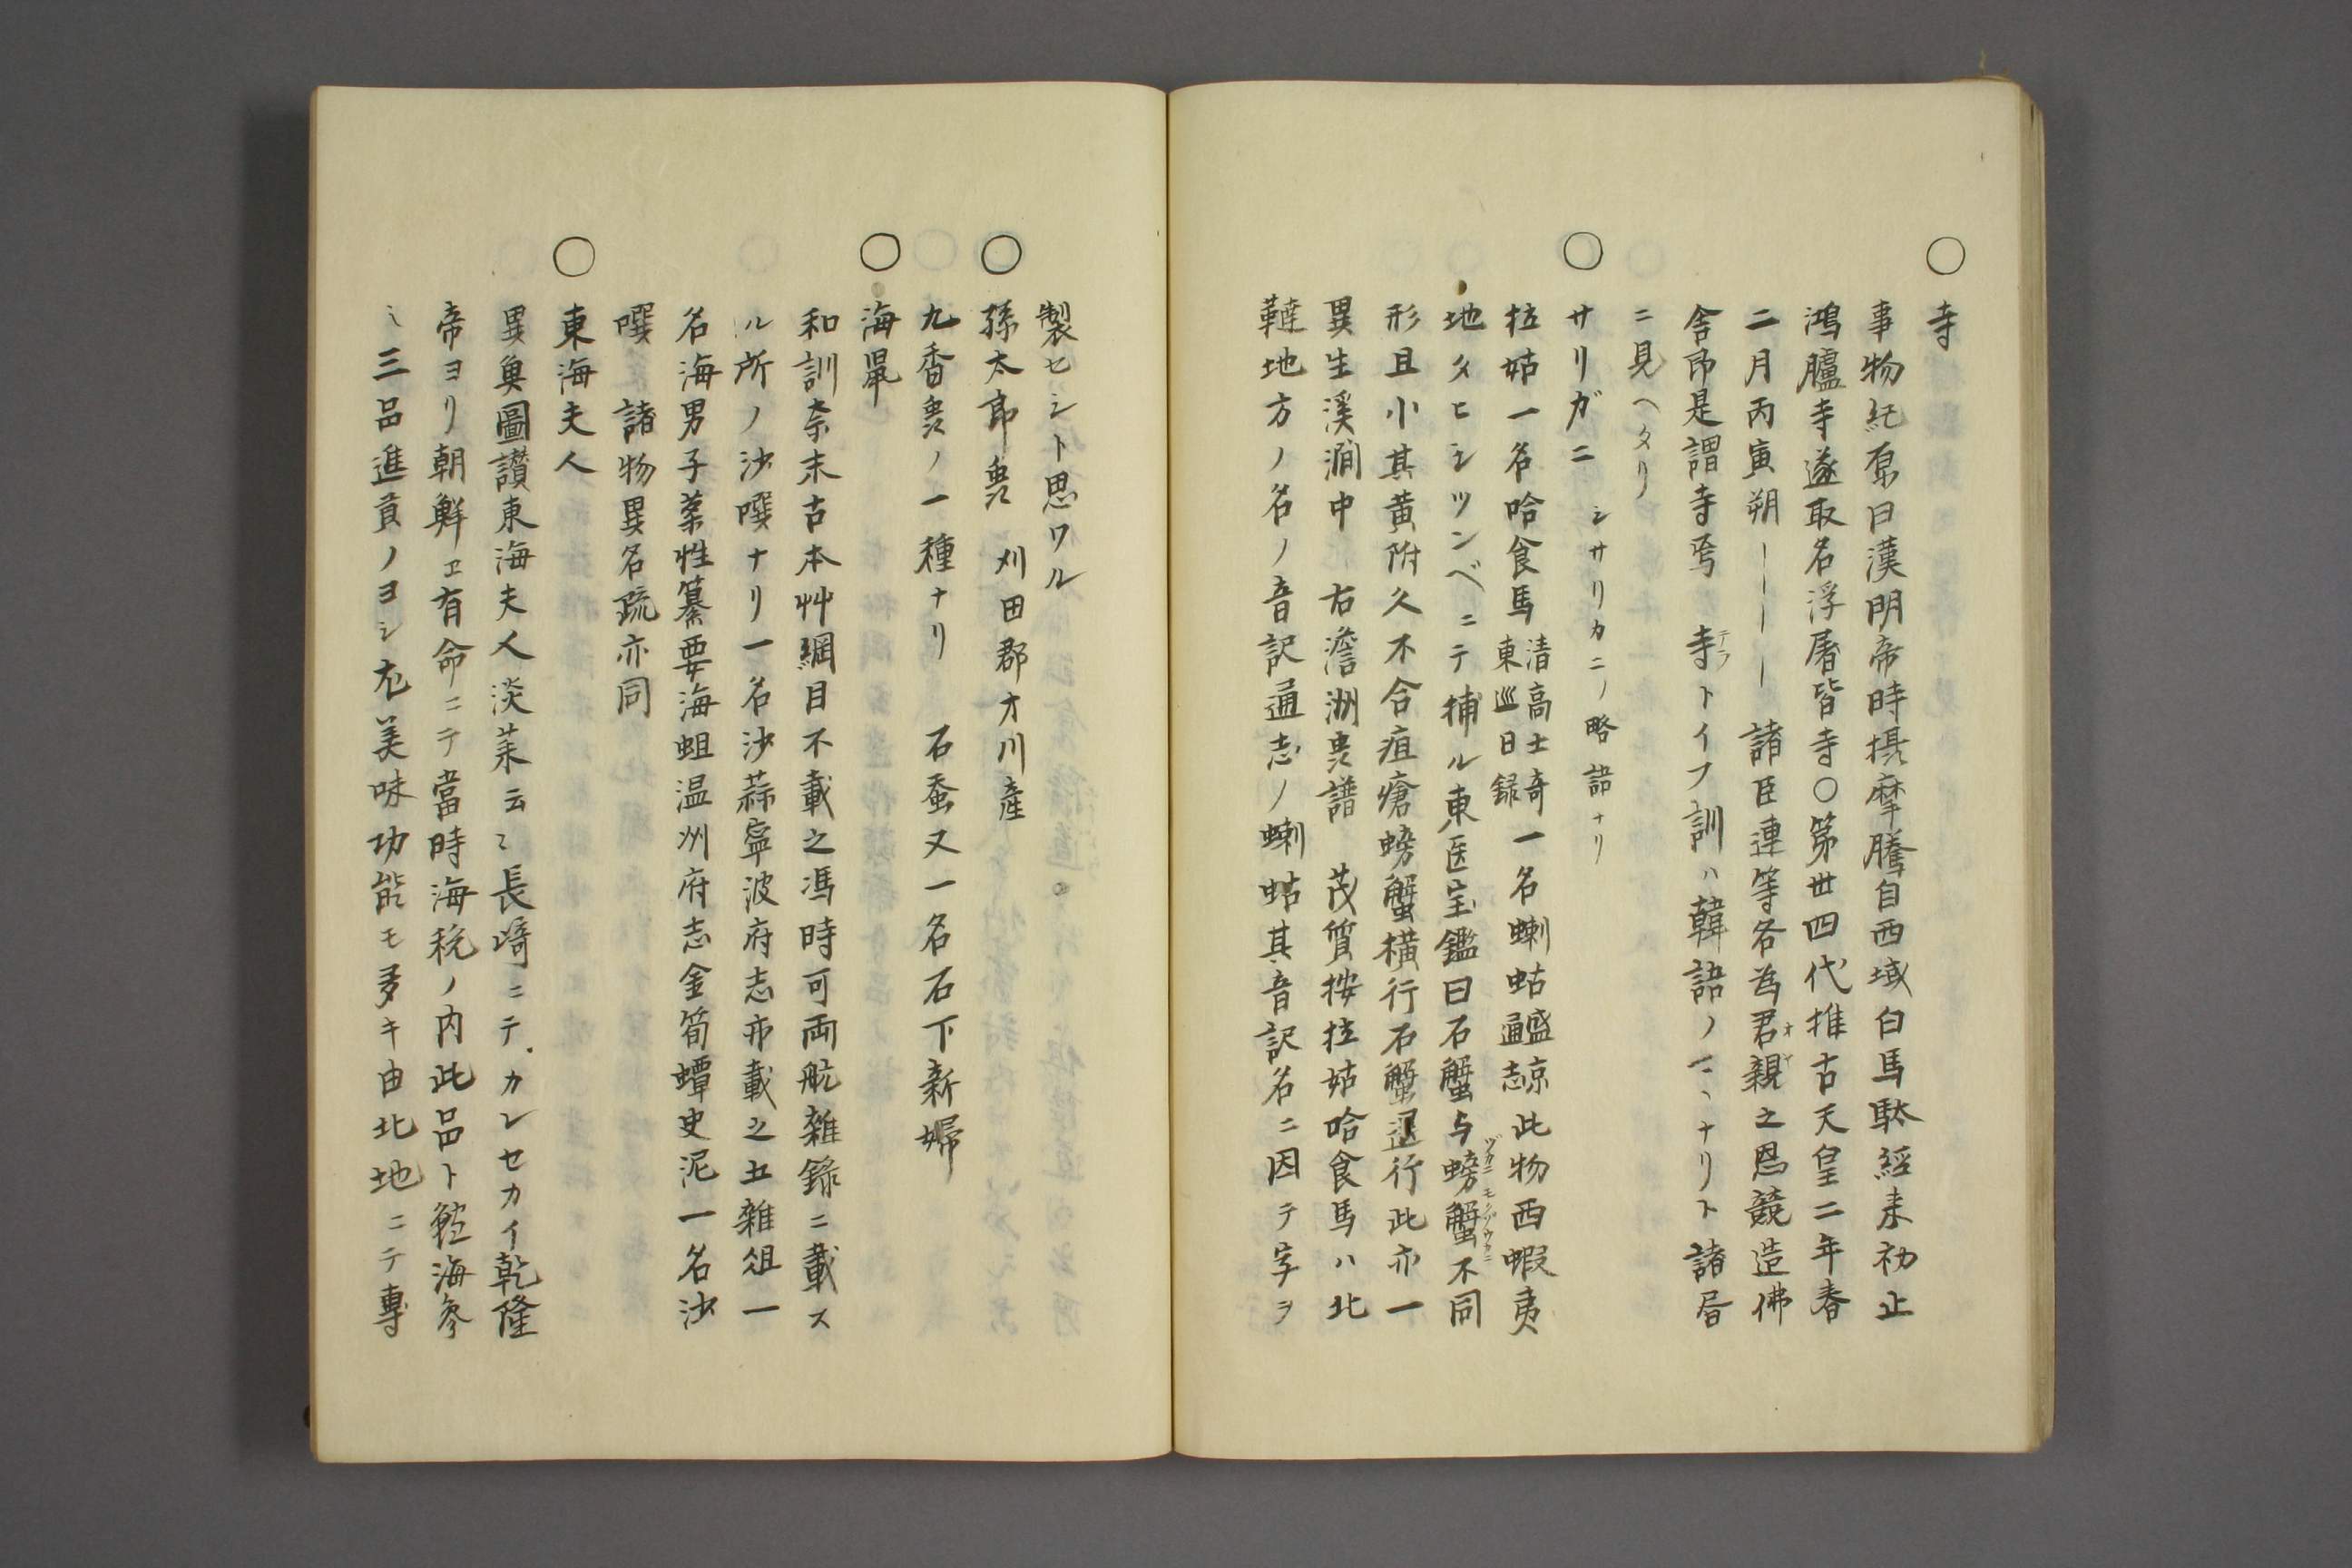 ○寺
事物紀原曰漢明帝時摂摩騰自西域白馬駄経来初止
鴻臚寺遂取名浮屠皆寺○第卅四代推古天皇二年春
二月丙寅朔ーーーー諸臣連等各為君親之恩競造佛
オヤ
舎即是謂寺焉 寺トイフ訓ハ韓語ノマヽナリト諸書
テラ
ニ見ヘタリ
○サリガニ シサリカニノ略語ナリ
拉姑一名哈食馬清高士奇東巡日録一名蝲蛄盛京通志此物西蝦夷
地タヒシツンベニテ捕ル東医宝鑑曰石蟹与螃蟹不同
ヅカニモクヅウカニ
形且小其黄附久不合疽瘡螃蟹横行石蟹退行此亦一
異生溪澗中 右澹洲虫譜 茂質按拉姑哈食馬ハ北
韃地方ノ名ノ音訳通志ノ蝲蛄其音訳名ニ因テ字ヲ
製セシト思ワル
○孫太郎虫 刈田郡才川産
九香虫ノ一種ナリ 石蚕又一名石下新婦
○海鼡
和訓奈末古本艸綱目不載之馮時可両航雑録ニ載ス
ル所ノ沙噀ナリ一名沙蒜寧波府志亦載之五雑俎一
名海男子薬性纂要海蛆温州府志金筍蟫史泥一名沙
噀 諸物異名疏亦同
○東海夫人
異魚圖讃東海夫人淡菜云〻長﨑ニテカレセカイ乾隆
帝ヨリ朝鮮ヱ有命ニテ當時海税ノ内此品ト鰒海参
〻三品進貢ノヨシ尤美味功能モ多キ由北地ニテ専